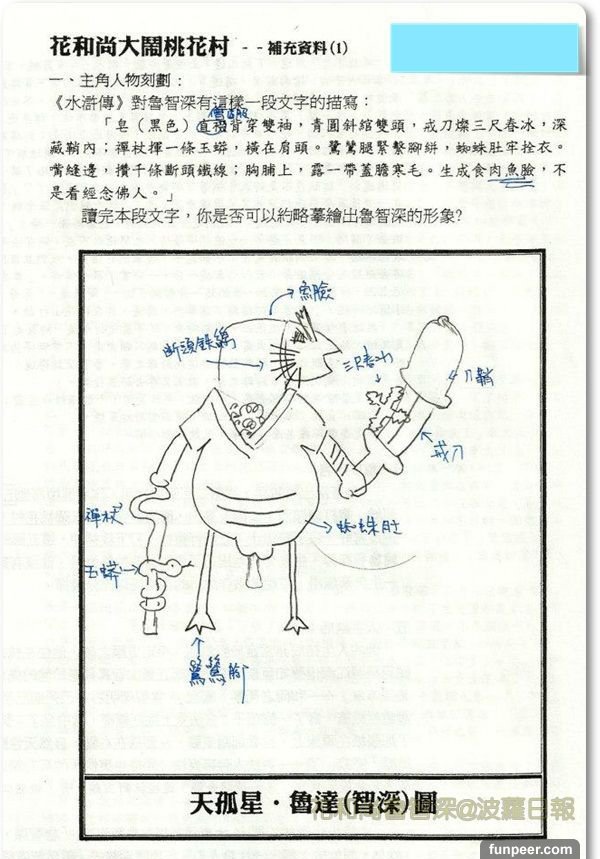 花和尚大鬧桃花村 - - 補充資料(1)
一、主角人物刻劃：
《水滸傳》對魯智深有這樣一段文字的描寫：
「皂（黑色）直裰背穿雙袖，青圓斜綰雙頭，戒刀燦三尺春冰，深
藏鞘內；禪杖揮一條玉蟒，橫在肩頭。鷺鷥腿緊繫腳絣，蜘蛛肚牢拴衣。
嘴縫邊，攢千條斷頭鐵線；胸脯上，露一帶蓋膽寒毛。生成食肉魚臉，不
是看經念佛人。」
讀完本段文字，你是否可以約略摹繪出魯智深的形象?
魚臉
斷頭鐵線
三尺春冰
刀鞘
戒刀
禪杖
蜘蛛肚
玉蟒
鷺鷥腳
天孤星・魯達(智深)圖
花和尚魯智深@波蘿日報
funpeer.com